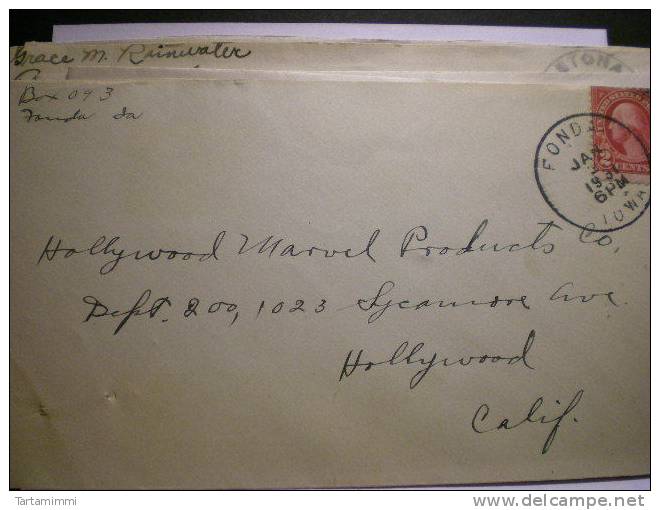 Grace M. Rainwater
Box 093
Fonda Ia
STONA
FONDA
JAN
193
6PM
IOWA
2 CENTS
Hollywood Marvel Products Co.
Dept. 200, 1023 Sycamore Ave.
Hollywood
Calif.
Tartamimmi
delcampe.net